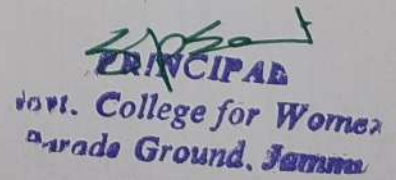 PRINCIPAL
Govt. College for Women
Parade Ground, Jammu